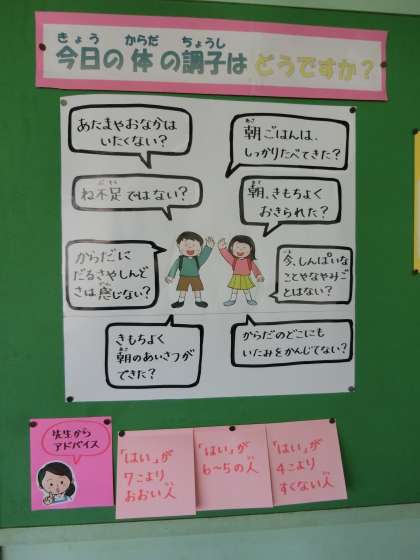 きょう からだ ちょうし
今日の体の調子は どうですか？
あたまやおなかは
いたくない？
あさ
朝ごはんは、
しっかりたべてきた？
ぶそく
ね不足ではない？
あさ
朝、きもちよく
おきられた？
からだに
だるさやしんど
さは感じない？
かん
いま
今、しんぱいな
ことやなやみご
とはない？
きもちよく
あさ
朝のあいさつが
できた？
からだのどこにも
いたみをかんじてない？
先生から
アドバイス
「はい」が
7こより
おおい人
「はい」が
6〜5の人
「はい」が
4こより
すくない人